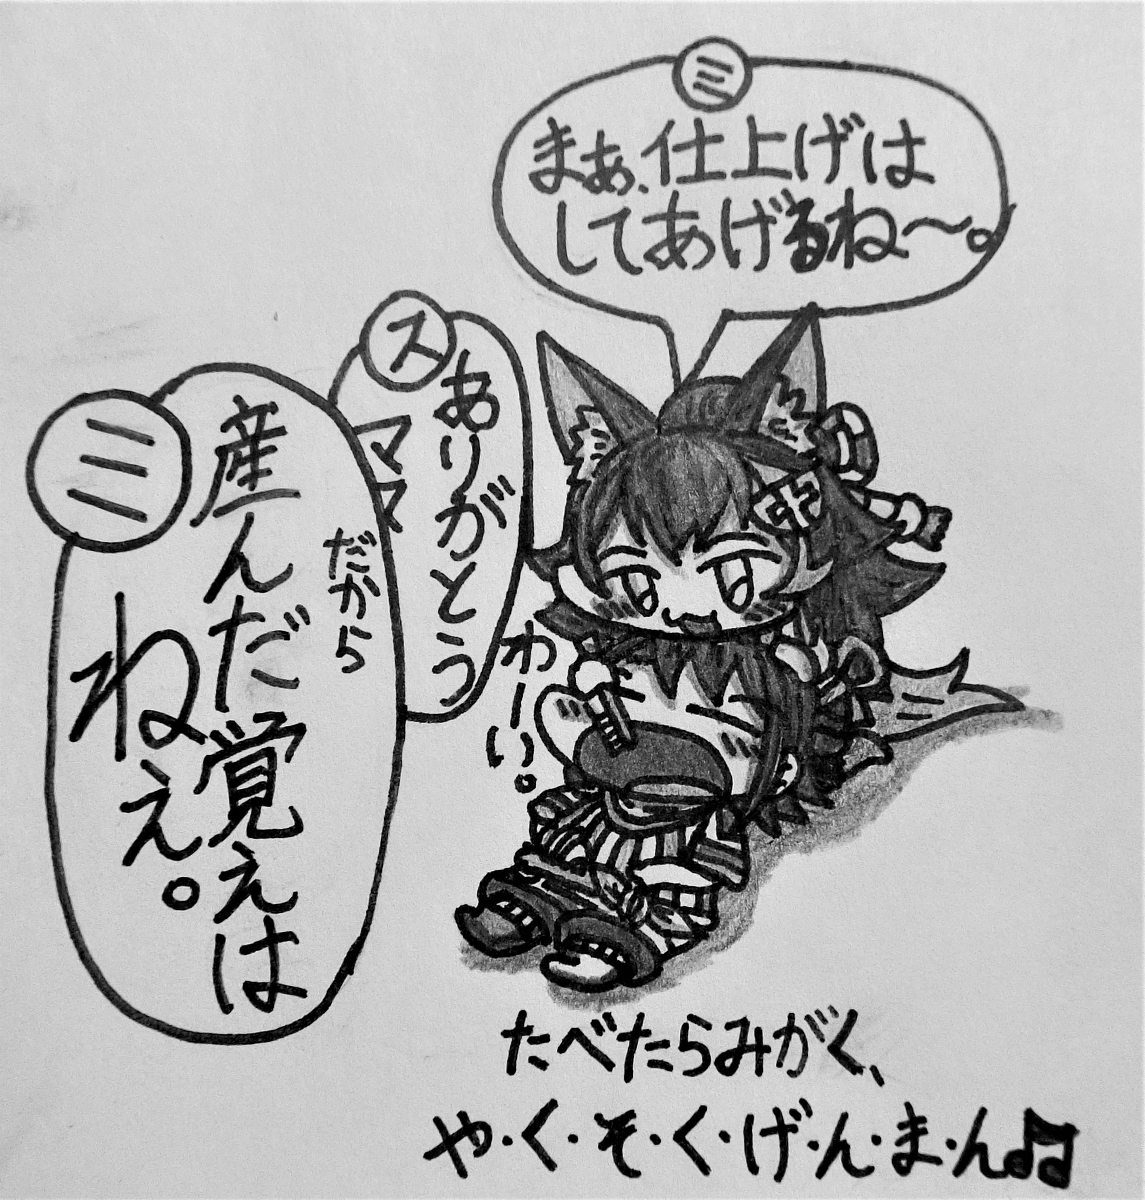 ミ
まぁ、仕上げは
してあげるね〜。
ス
ありがとう
ママ
わーい。
ミ
だから
産んだ覚えは
ねぇ。
たべたらみがく、
や・く・そ・く・げ・ん・ま・ん♫